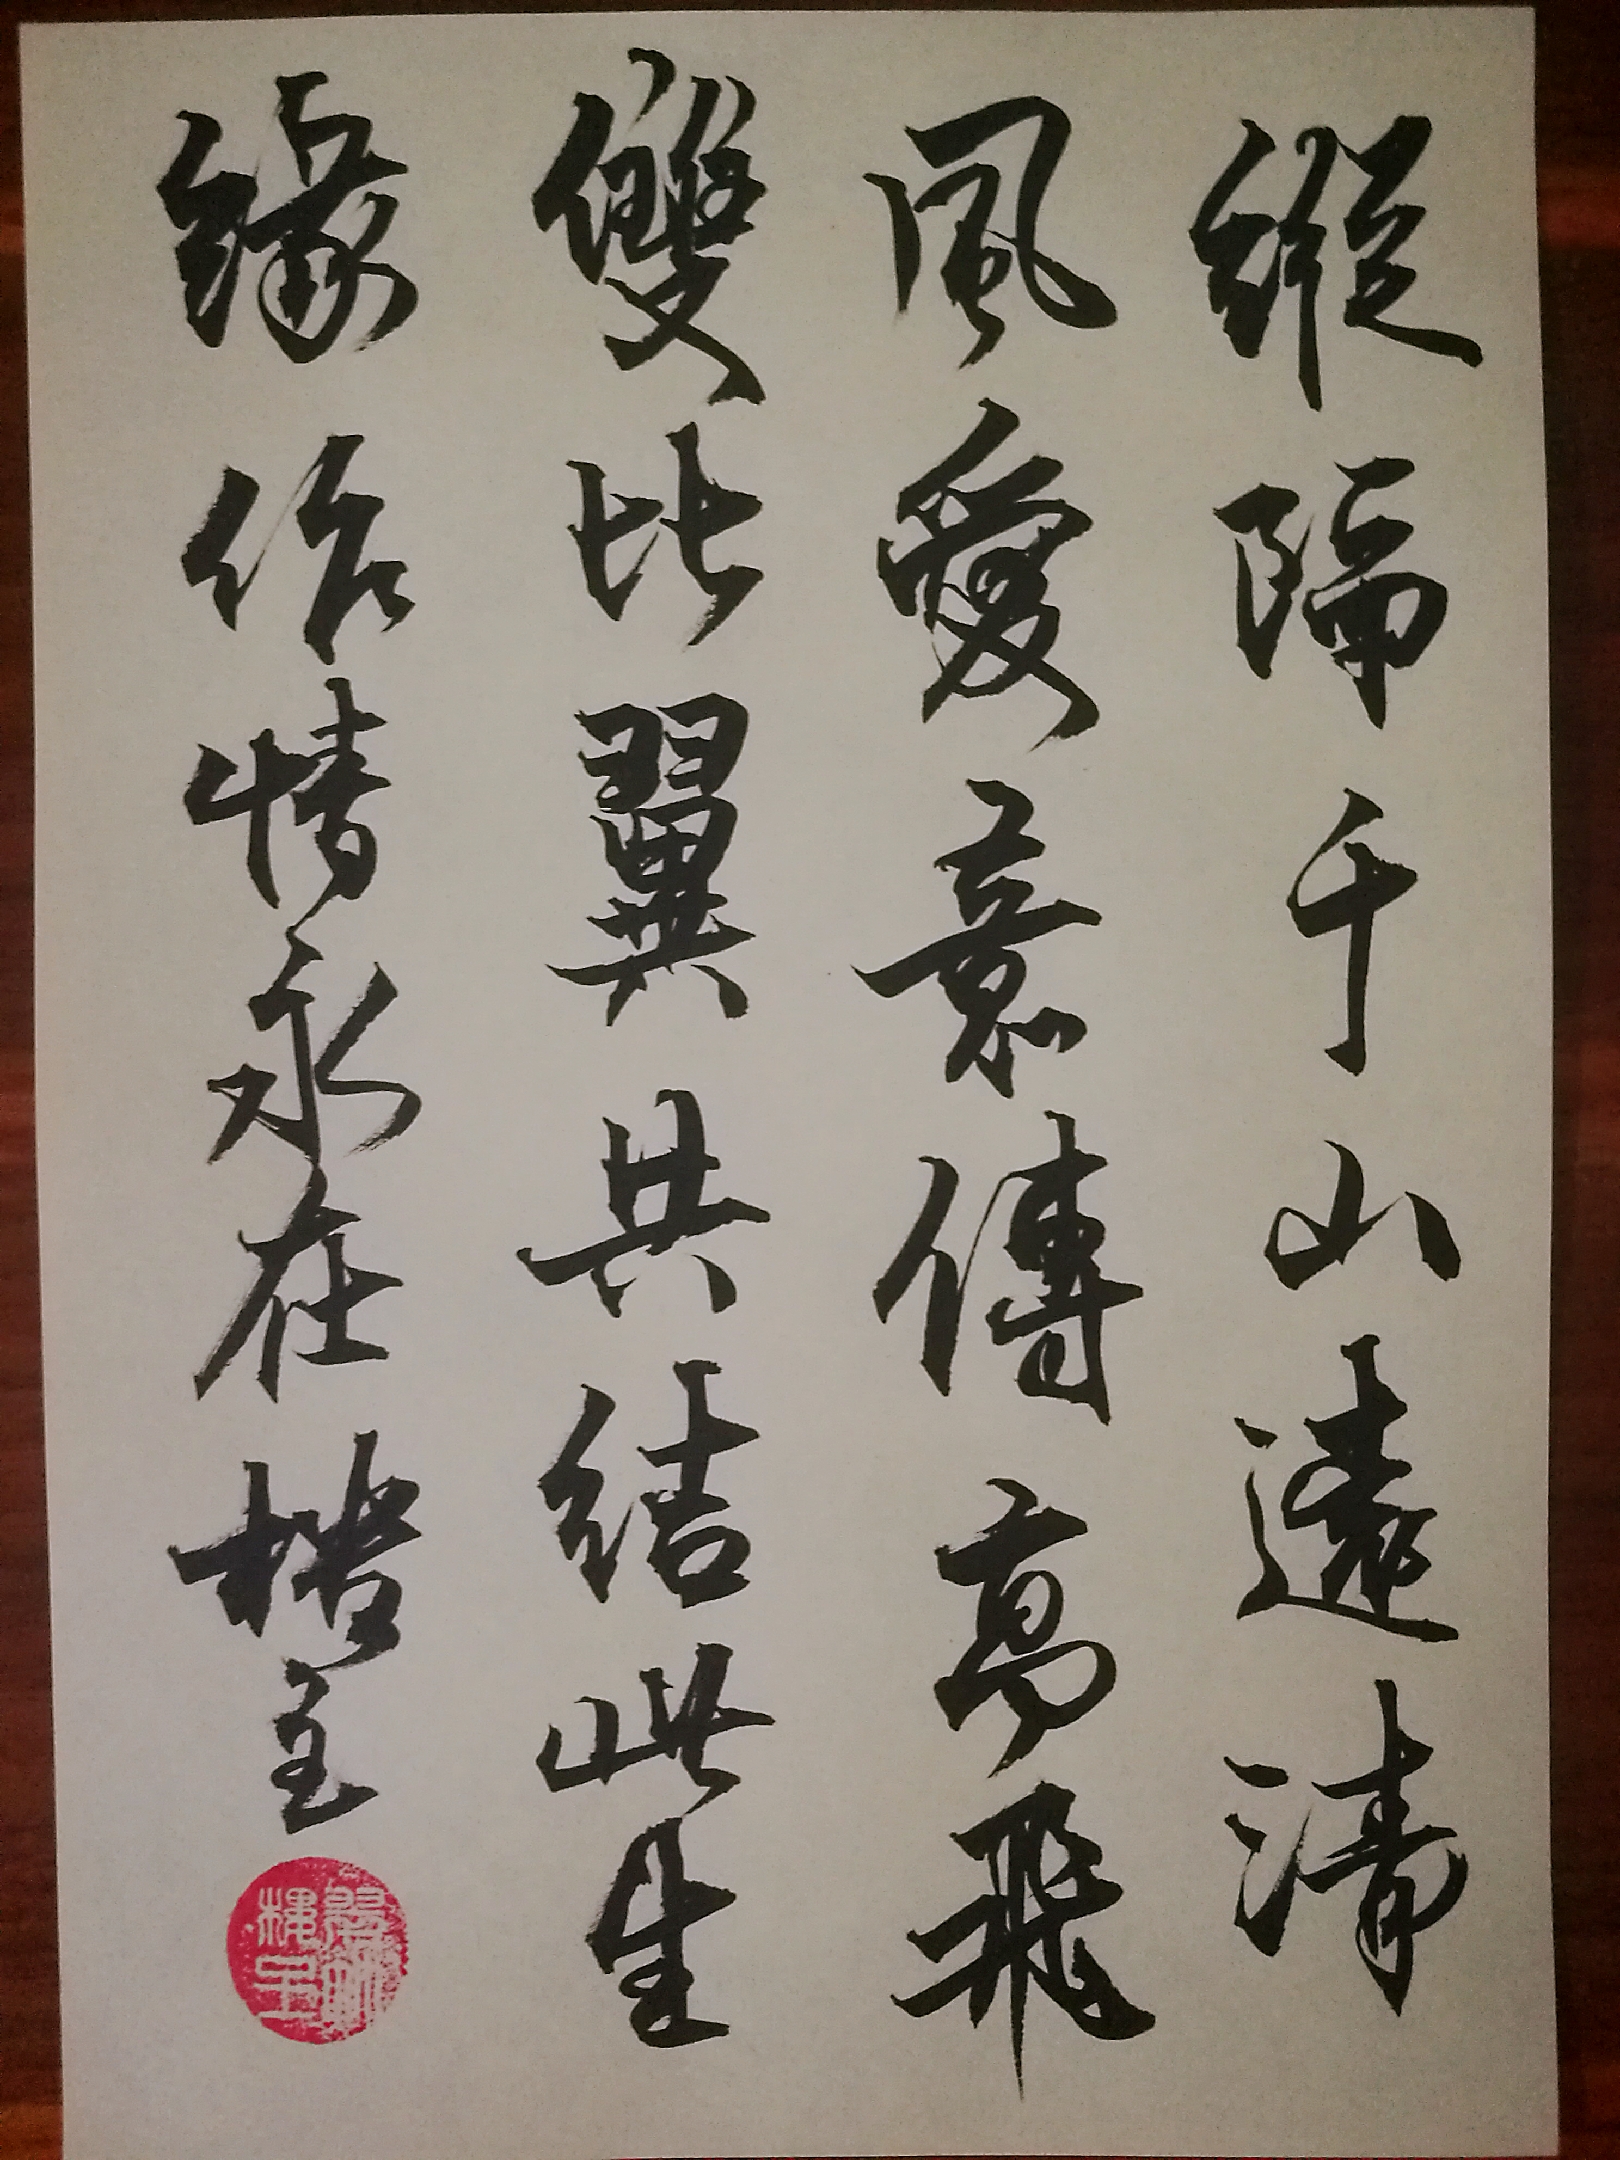 縱隔千山遠清
風愛意傳高飛
雙比翼共結此生
緣作情永在